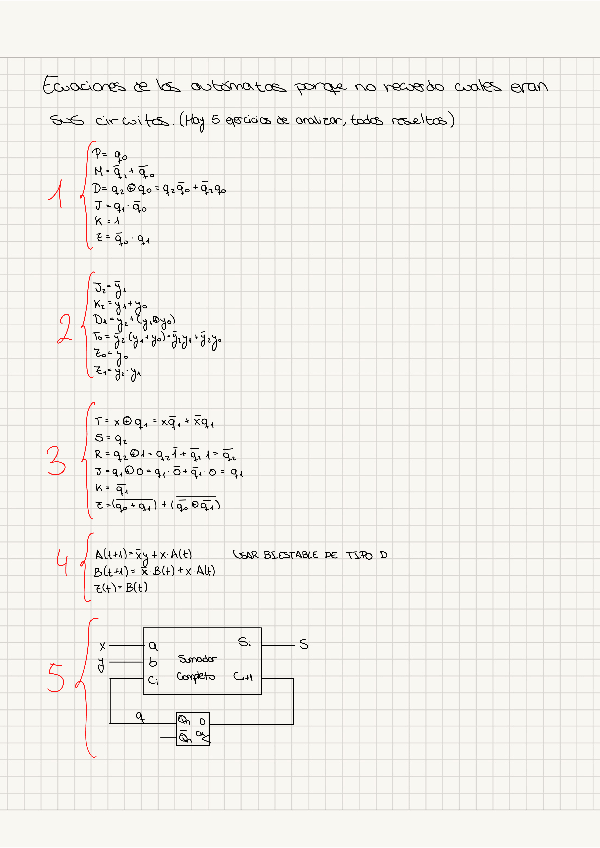 Ecuaciones de los autómatas porque no recuerdo cuales eran
sus circuitos. (Hay 5 ejercicios de analizar, todos resueltos)
1
P = q₀
M = q̄₁ + q̄₀
D = q₂ ⊕ q₀ = q₂q̄₀ + q̄₂q₀
J = q₁ · q̄₀
K = 1
Z = q̄₀ · q₁
2
J₂ = ȳ₁
K₂ = y₁ + y₀
D₁ = y₂ + (y₁ ⊕ y₀)
T₀ = ȳ₂(y₁ + y₀) = ȳ₂y₁ + ȳ₂y₀
Z₀ = y₀
Z₁ = y₂ · y₁
3
T = x ⊕ q₁ = xq̄₁ + x̄q₁
S = q₂
R = q₂ ⊕ 1 = q₂ 1̄ + q̄₂ 1 = q̄₂
J = q₁ ⊕ 0 = q₁ · 0̄ + q̄₁ · 0 = q₁
K = q̄₁
4
A(t+1) = x̄y + x·A(t) USAR BIESTABLE DE TIPO D
B(t+1) = x̄·B(t) + x·A(t)
Z(t) = B(t)
5
x a Si S
y b Sumador
Ci Completo
q Qn D
Q̄n